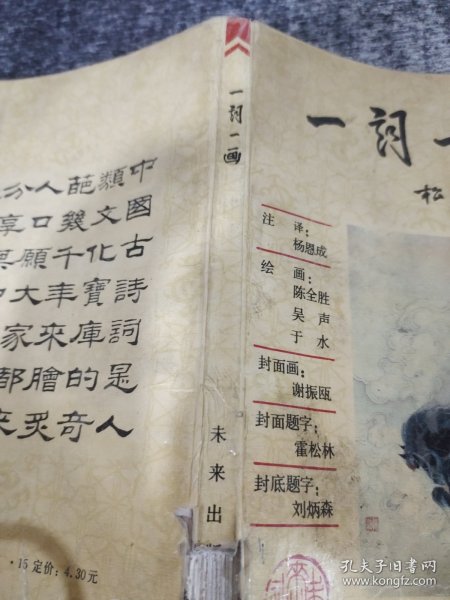 中國古詩詞是人
類文化寶庫的奇
葩幾千年來膾炙
人口願大家都來
分享
·15 定价：4.30元
一詞一画
未来出
一詞一
松
注 译：
杨恩成
绘 画：
陈全胜
吴 声
于 水
封面画：
谢振瓯
封面题字：
霍松林
封底题字：
刘炳森
孔夫子旧书网